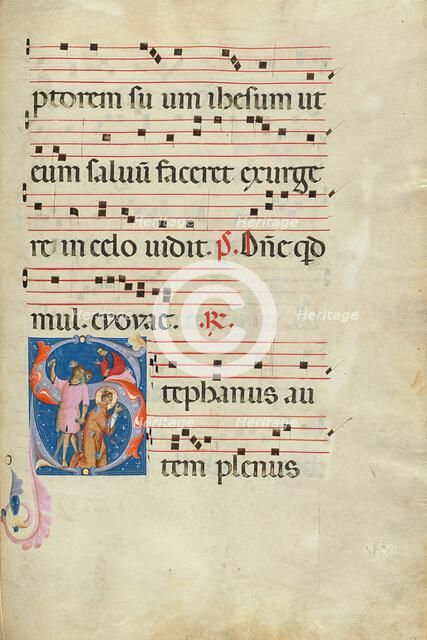 ptorem su um ihesum ut
eum saluū faceret exurge
re in celo uidit. P. Dñe qd
mul. evovae. R.
tephanus au
tem plenus
Heritage
Heritage
Heritage
Heritage
Heritage
Heritage